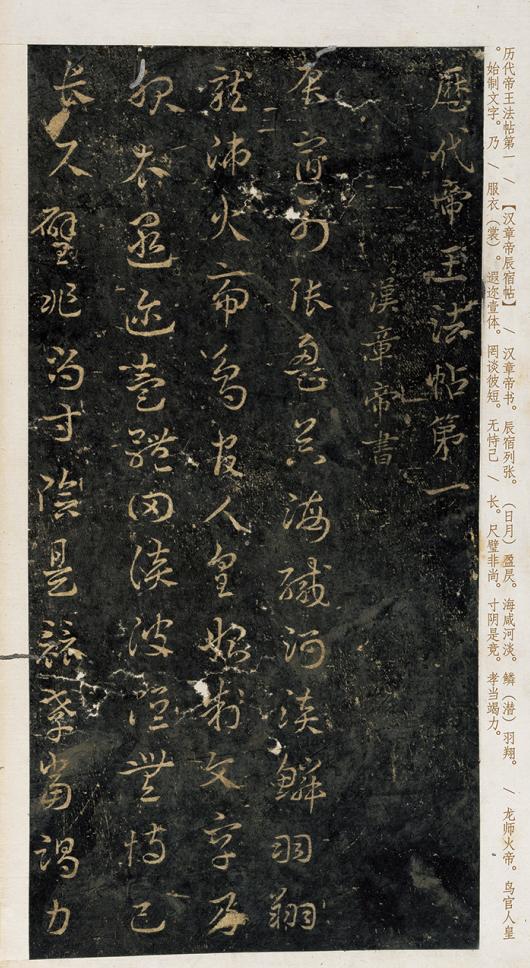 历代帝王法帖第一 / 【汉章帝辰宿帖】 / 汉章帝书。辰宿列张。（日月）盈昃。海咸河淡。鳞（潜）羽翔。 / 龙师火帝。鸟官人皇
。始制文字。乃 / 服衣（裳）。遐迩壹体。罔谈彼短。无恃己 / 长。尺璧非尚。寸阴是竞。孝当竭力。
歷代帝王法帖第一
漢章帝書
辰宿列張盈昃海鹹河淡鱗羽翔
龍師火帝鳥官人皇始制文字乃
服衣遐迩壹體罔談彼短無恃己
長尺璧非尚寸陰是競孝當竭力